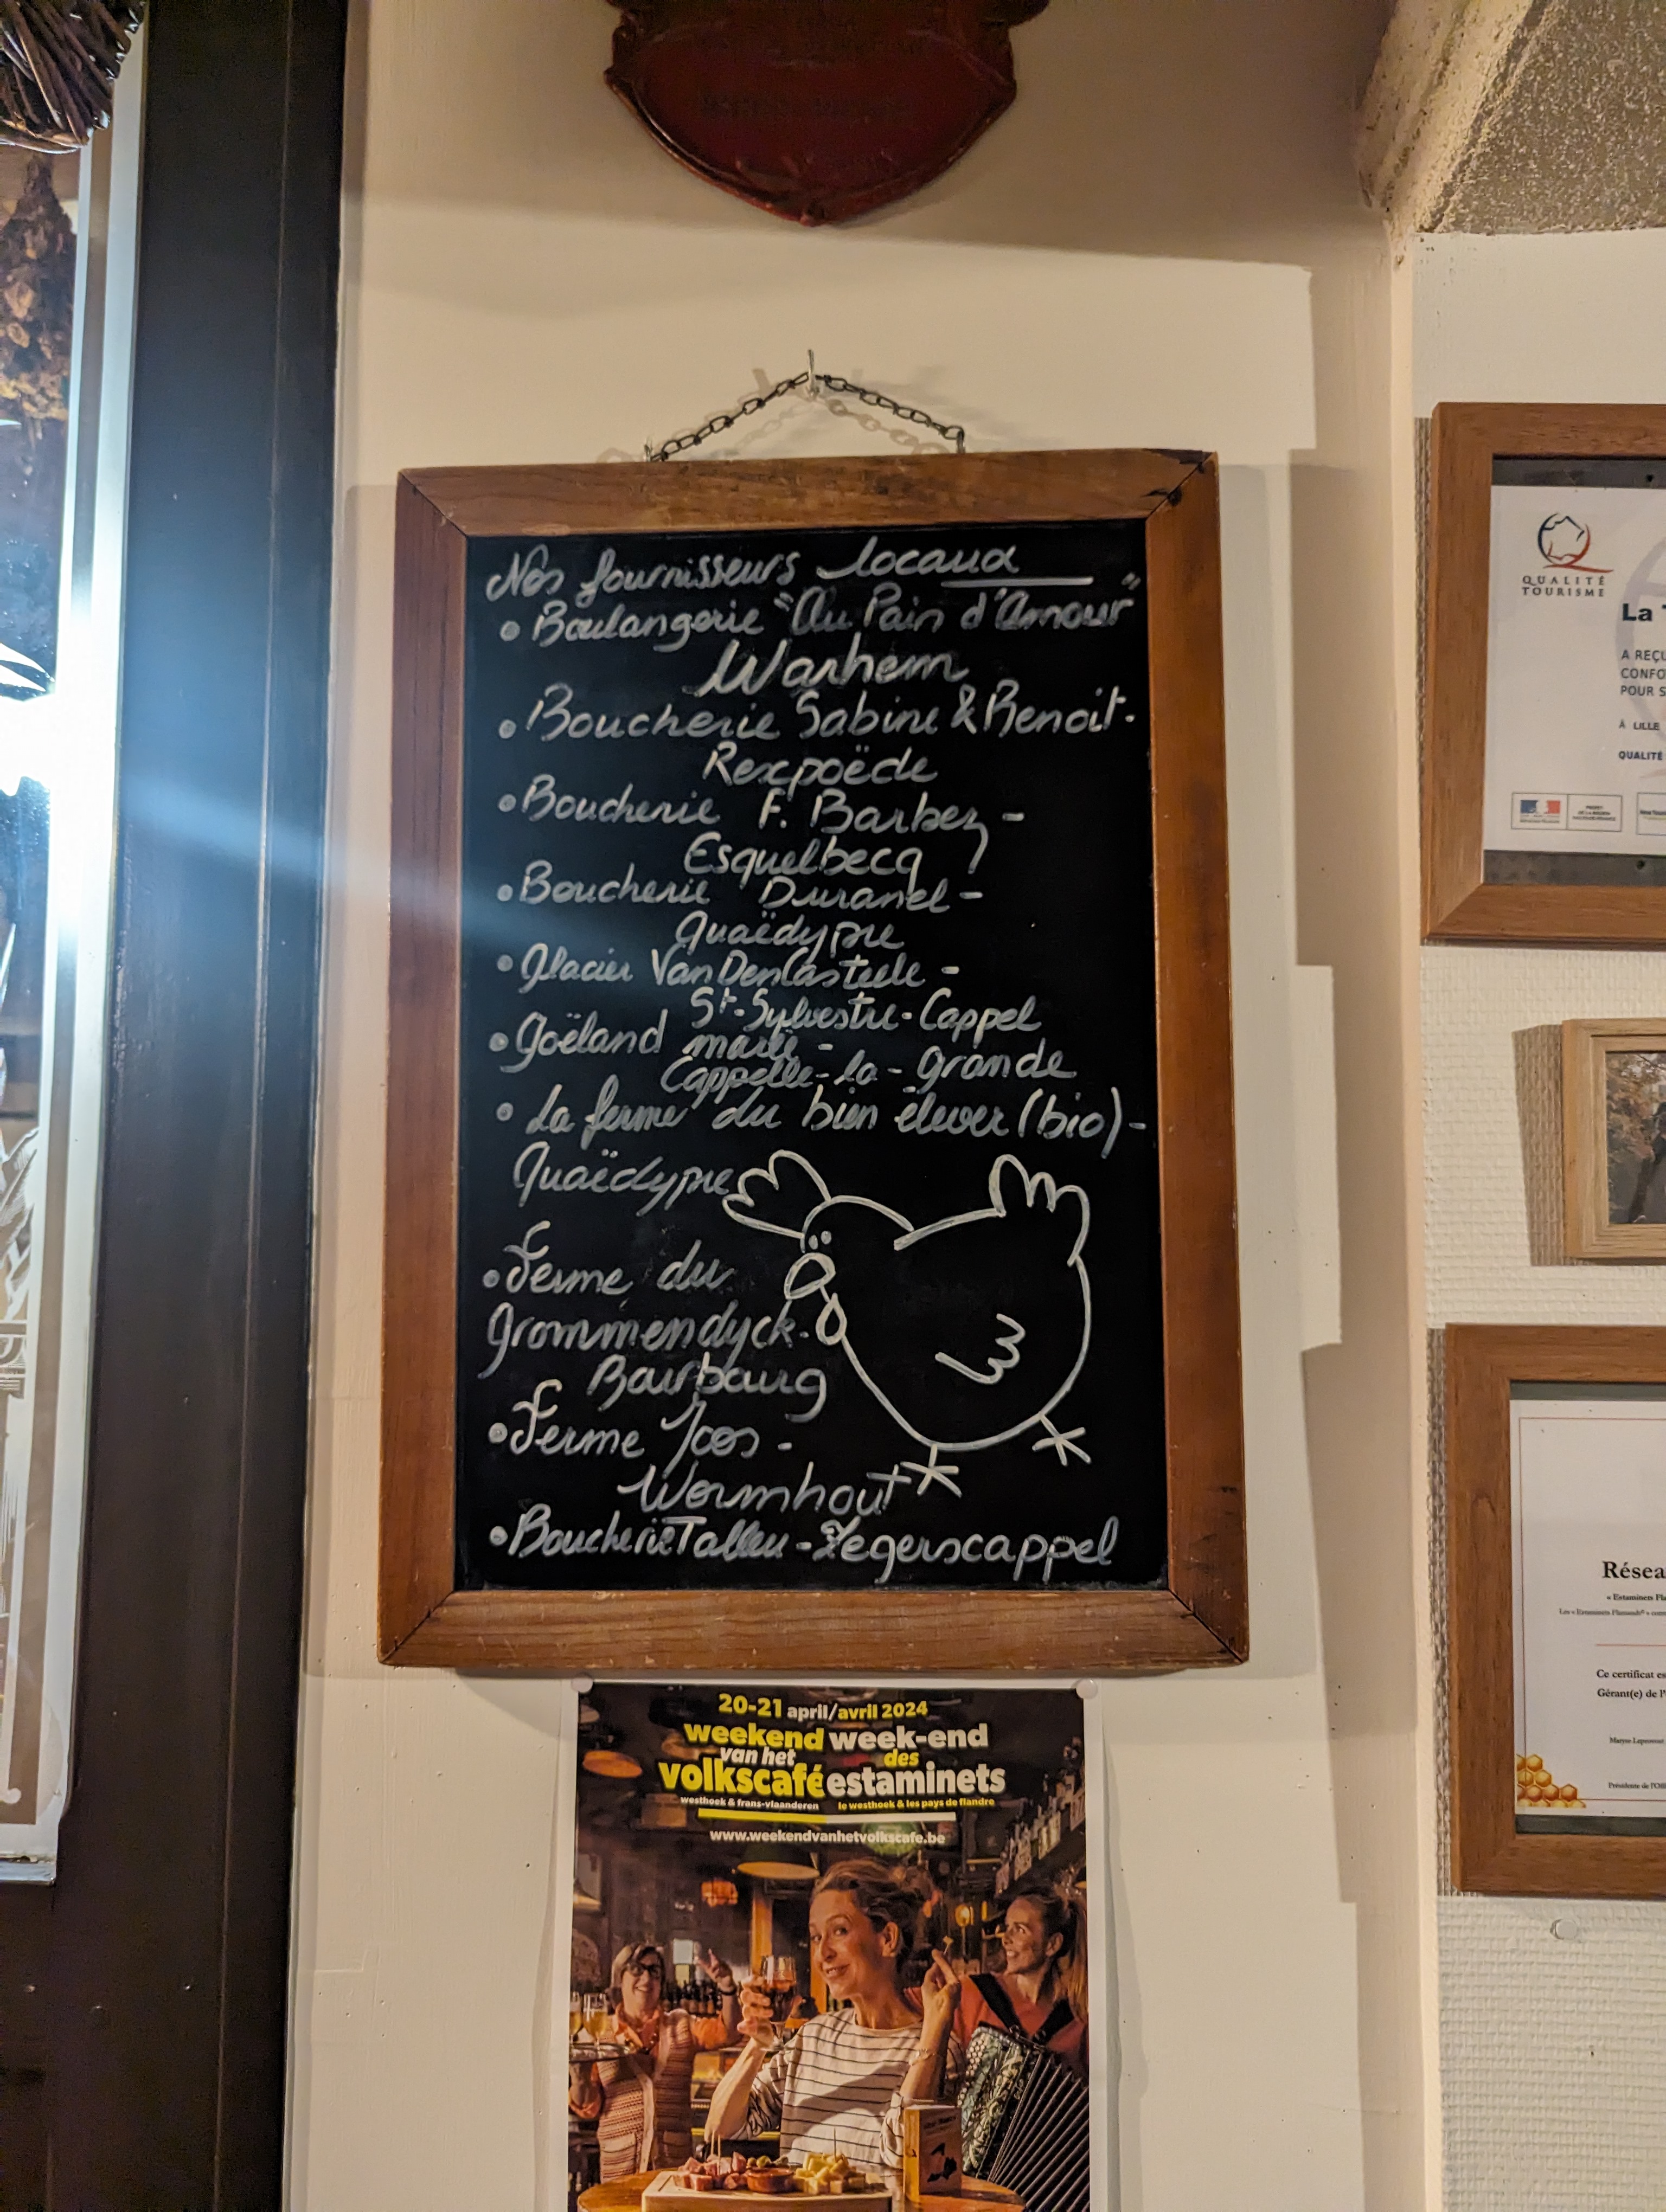 Nos fournisseurs locaux
• Boulangerie "Au Pain d'Amour"
Warhem
• Boucherie Sabine & Benoit.
Rexpoëde
• Boucherie F. Barbez -
Esquelbecq
• Boucherie Duranel -
Quaëdypre
• Glacier VanDenCasteele -
St-Sylvestre-Cappel
• Goëland marée -
Cappelle-la-Grande
• La ferme du bien élever (bio) -
Quaëdypre
• Ferme du
Grommendyck.
Bourbourg
• Ferme Joos -
Wormhout
• Boucherie Talleu - Zegerscappel
20-21 april/avril 2024
weekend week-end
van het des
volkscafé estaminets
westhoek & frans-vlaanderen le westhoek & les pays de flandre
www.weekendvanhetvolkscafe.be
QUALITÉ
TOURISME
La
A REÇU
CONFO
POUR S
À LILLE
QUALITÉ
Résea
« Estaminets Fla
Ce certificat es
Gérant(e) de l'